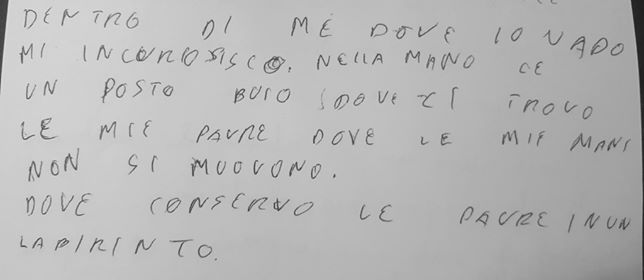 DENTRO DI ME DOVE IO VADO
MI INCURIOSISCO. NELLA MANO CE
UN POSTO BUIO DOVE CI TROVO
LE MIE PAURE DOVE LE MIE MANI
NON SI MUOVONO.
DOVE CONSERVO LE PAURE IN UN
LABIRINTO.